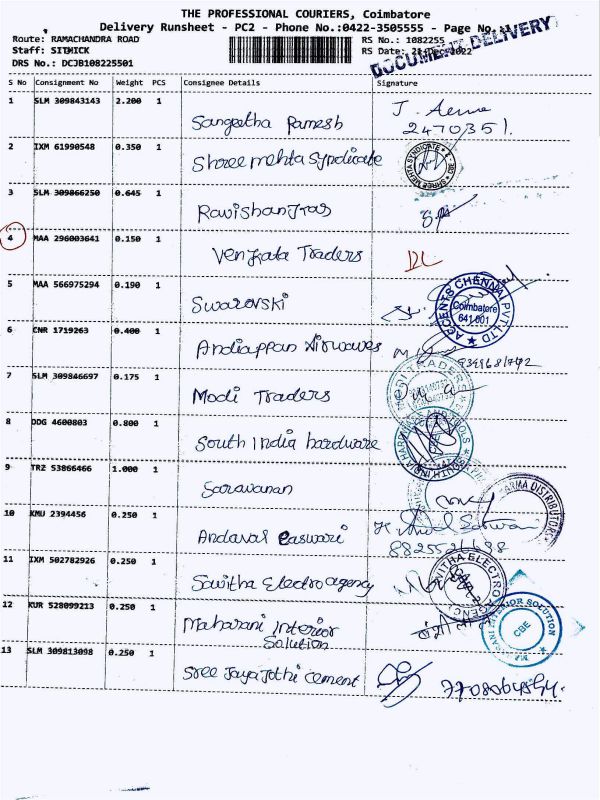 THE PROFESSIONAL COURIERS, Coimbatore
Delivery Runsheet - PC2 - Phone No.:0422-3505555 - Page No.
Route: RAMACHANDRA ROAD RS No.: 1082255
Staff: SITHICK RS Date: 22-Dec-2022
DRS No.: DCJB108225501
DOCUMENT DELIVERY
S No Consignment No Weight PCS Consignee Details Signature
1 SLM 309843143 2.200 1 Sangeetha Ramesh
2470351.
2 IXM 61990548 0.350 1 Shree mehta Syndicate
SHREE MEHTA SYNDICATE
3 SLM 309866250 0.645 1
4 MAA 296003641 0.150 1 Venkata Traders
5 MAA 566975294 0.190 1 Swarovski
ACCENTS CHENNAI PVT LTD
Coimbatore
641 001
6 CNR 1719263 0.400 1 Andiappan Airwaves
7 SLM 309846697 0.175 1 Modi Traders
8 DDG 4600803 0.800 1 South India hardware
9 TRZ 53866466 1.000 1 Saravanan
10 KMU 2394456 0.250 1 Andaval easwari
11 IXM 502782926 0.250 1 Savitha Electro agency
12 KUR 528099213 0.250 1 Maharani Interior
Solution
CBE
13 SLM 309813098 0.250 1 Sree Jaya Jothi Cement